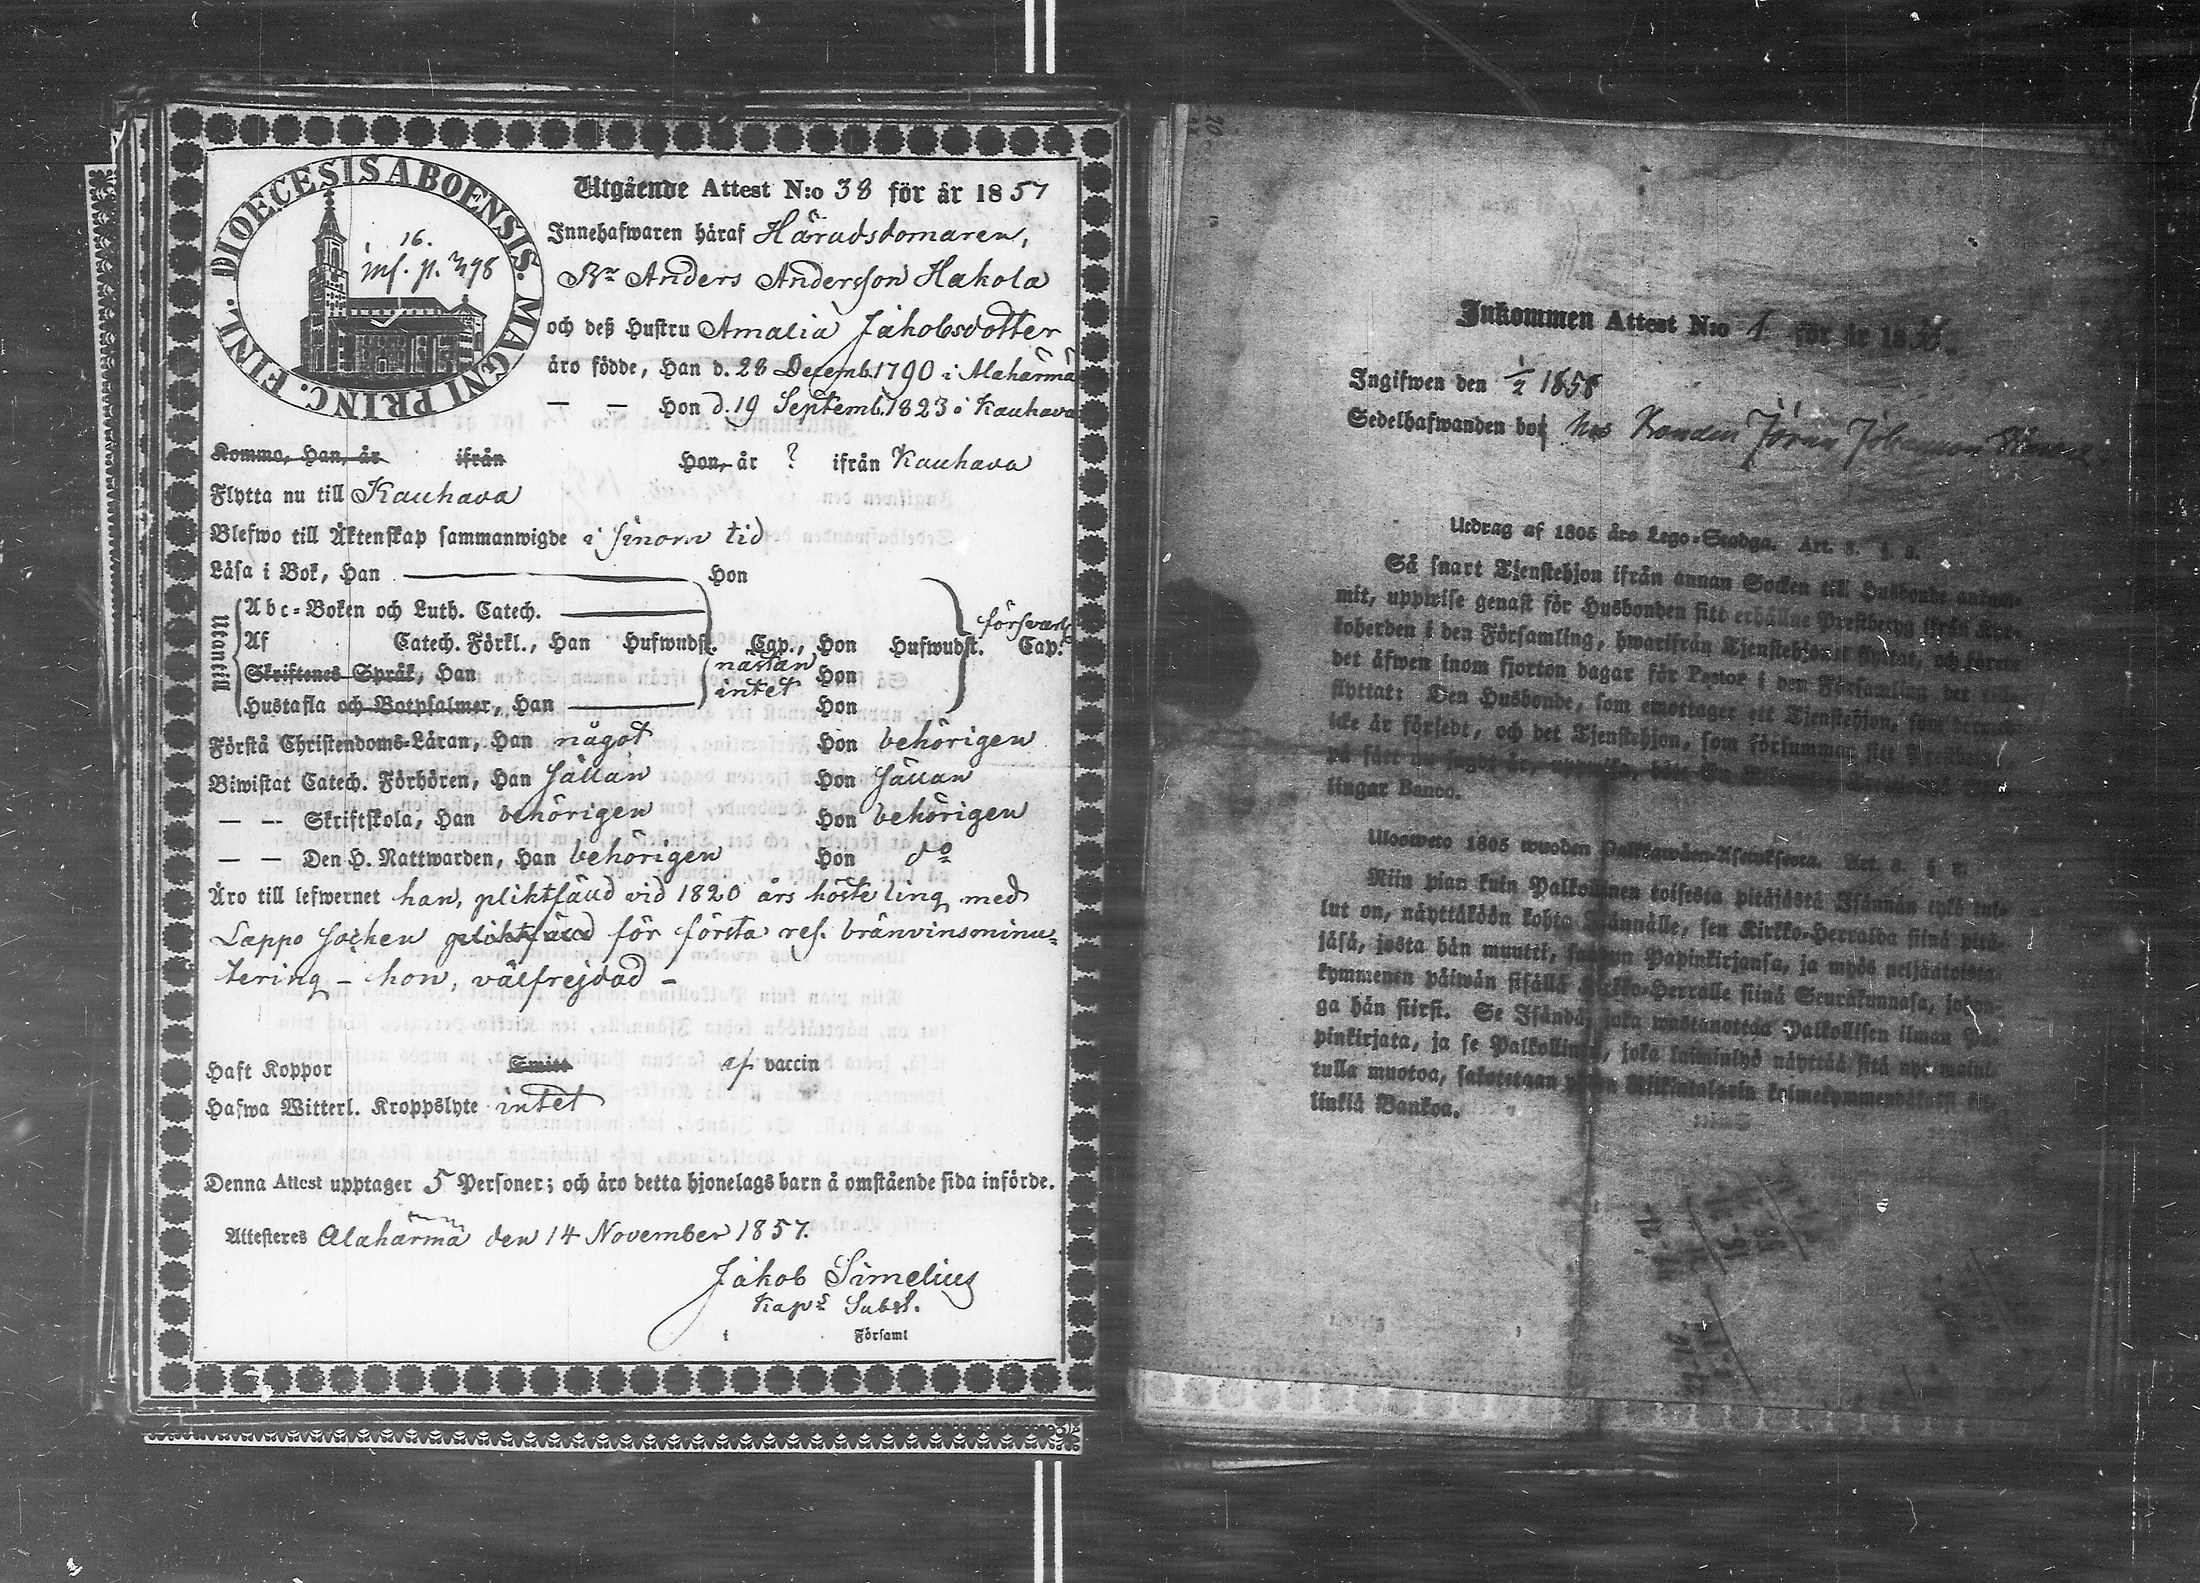 DIOECESIS ABOENSIS. MAGNI PRINC. FINL.
16.
inf. p. 398
Utgående Attest N:o 38 för år 1857
Innehafwaren häraf Häradsdomaren,
Bn Anders Andersson Hakola
och deß Hustru Amalia Jakobsdotter
äro födde, Han d. 28 Decemb. 1790 i Alahärmä
— — Hon d. 19 Septemb. 1823 i Kauhava
Komma, Han, år ifrån Hon, år ? ifrån Kauhava
Flytta nu till Kauhava
Blefwo till Äktenskap sammanwigde i sinom tid
Läsa i Bok, Han — Hon
Utantill
Abc-Boken och Luth. Catech. —
Af Catech. Förkl., Han Hufwudst. Cap., Hon Hufwudst. Cap.
försvarl.
Skriftenes Språk, Han nästan Hon
intet
Hustafla och Botpsalmer, Han — Hon
Förstå Christendoms-Läran, Han något Hon behörigen
Biwistat Catech. Förhören, Han sällan Hon sällan
— — Skriftskola, Han behörigen Hon behörigen
— — Den H. Nattwarden, Han behörigen Hon do
Äro till lefwernet han, pliktfäld vid 1820 års höste ting med
Lappo socken pliktfäld för första res. bränvinsminu-
tering – hon, välfrejdad –
Haft Koppor Smitt af vaccin
Hafwa Witterl. Kroppslyte intet
Denna Attest upptager 5 Personer; och äro detta hjonelags barn å omstående sida införde.
Attesteres Alahärmä den 14 November 1857.
Jakob Simelius
Kaps Subst.
i Församl
Inkommen Attest N:o 1 för år 1858.
Ingifwen den 1/2 1858
Sedelhafwanden bor hos Bonden Jöran Johansson
Utdrag af 1805 års Lego-Stadga. Art. 3. § 8.
Så snart Tjenstehjon ifrån annan Socken till Husbonde ankom-
mit, uppwise genast för Husbonden sitt erhållne Prestbetyg ifrån Kyr-
koherden i den Församling, hwarifrån Tjenstehjonet flyttat, och förete
det äfwen inom fjorton dagar för Pastor i den Församling det till-
flyttat: Den Husbonde, som emottager ett Tjenstehjon, som
icke är försedt, och det Tjenstehjon, som försummar sitt
på sätt nu sagdt är, uppwisa,
lingar Banco.
Ulosweto 1805 wuoden Palkkawäen-Asetuksesta. Art. 3. § 8.
Niin pian kuin Palkollinen toisesta pitäjästä Isännän tykö tul-
lut on, näyttäköön kohta Isännälle, sen Kirkko-Herralda siinä pitä-
jäsä, josta hän muutti, saadun Papinkirjansa, ja myös neljäntoista-
kymmenen päiwän sisällä Kirkko-Herralle siinä Seurakunnasa, johon-
ga hän siirsi. Se Isändä, joka wastanottaa Palkollisen ilman Pa-
pinkirjata, ja se Palkollinen, joka laiminlyö näyttää sitä nyt mainit-
tulla muotoa, sakotetaan
linkiä Bankoa.